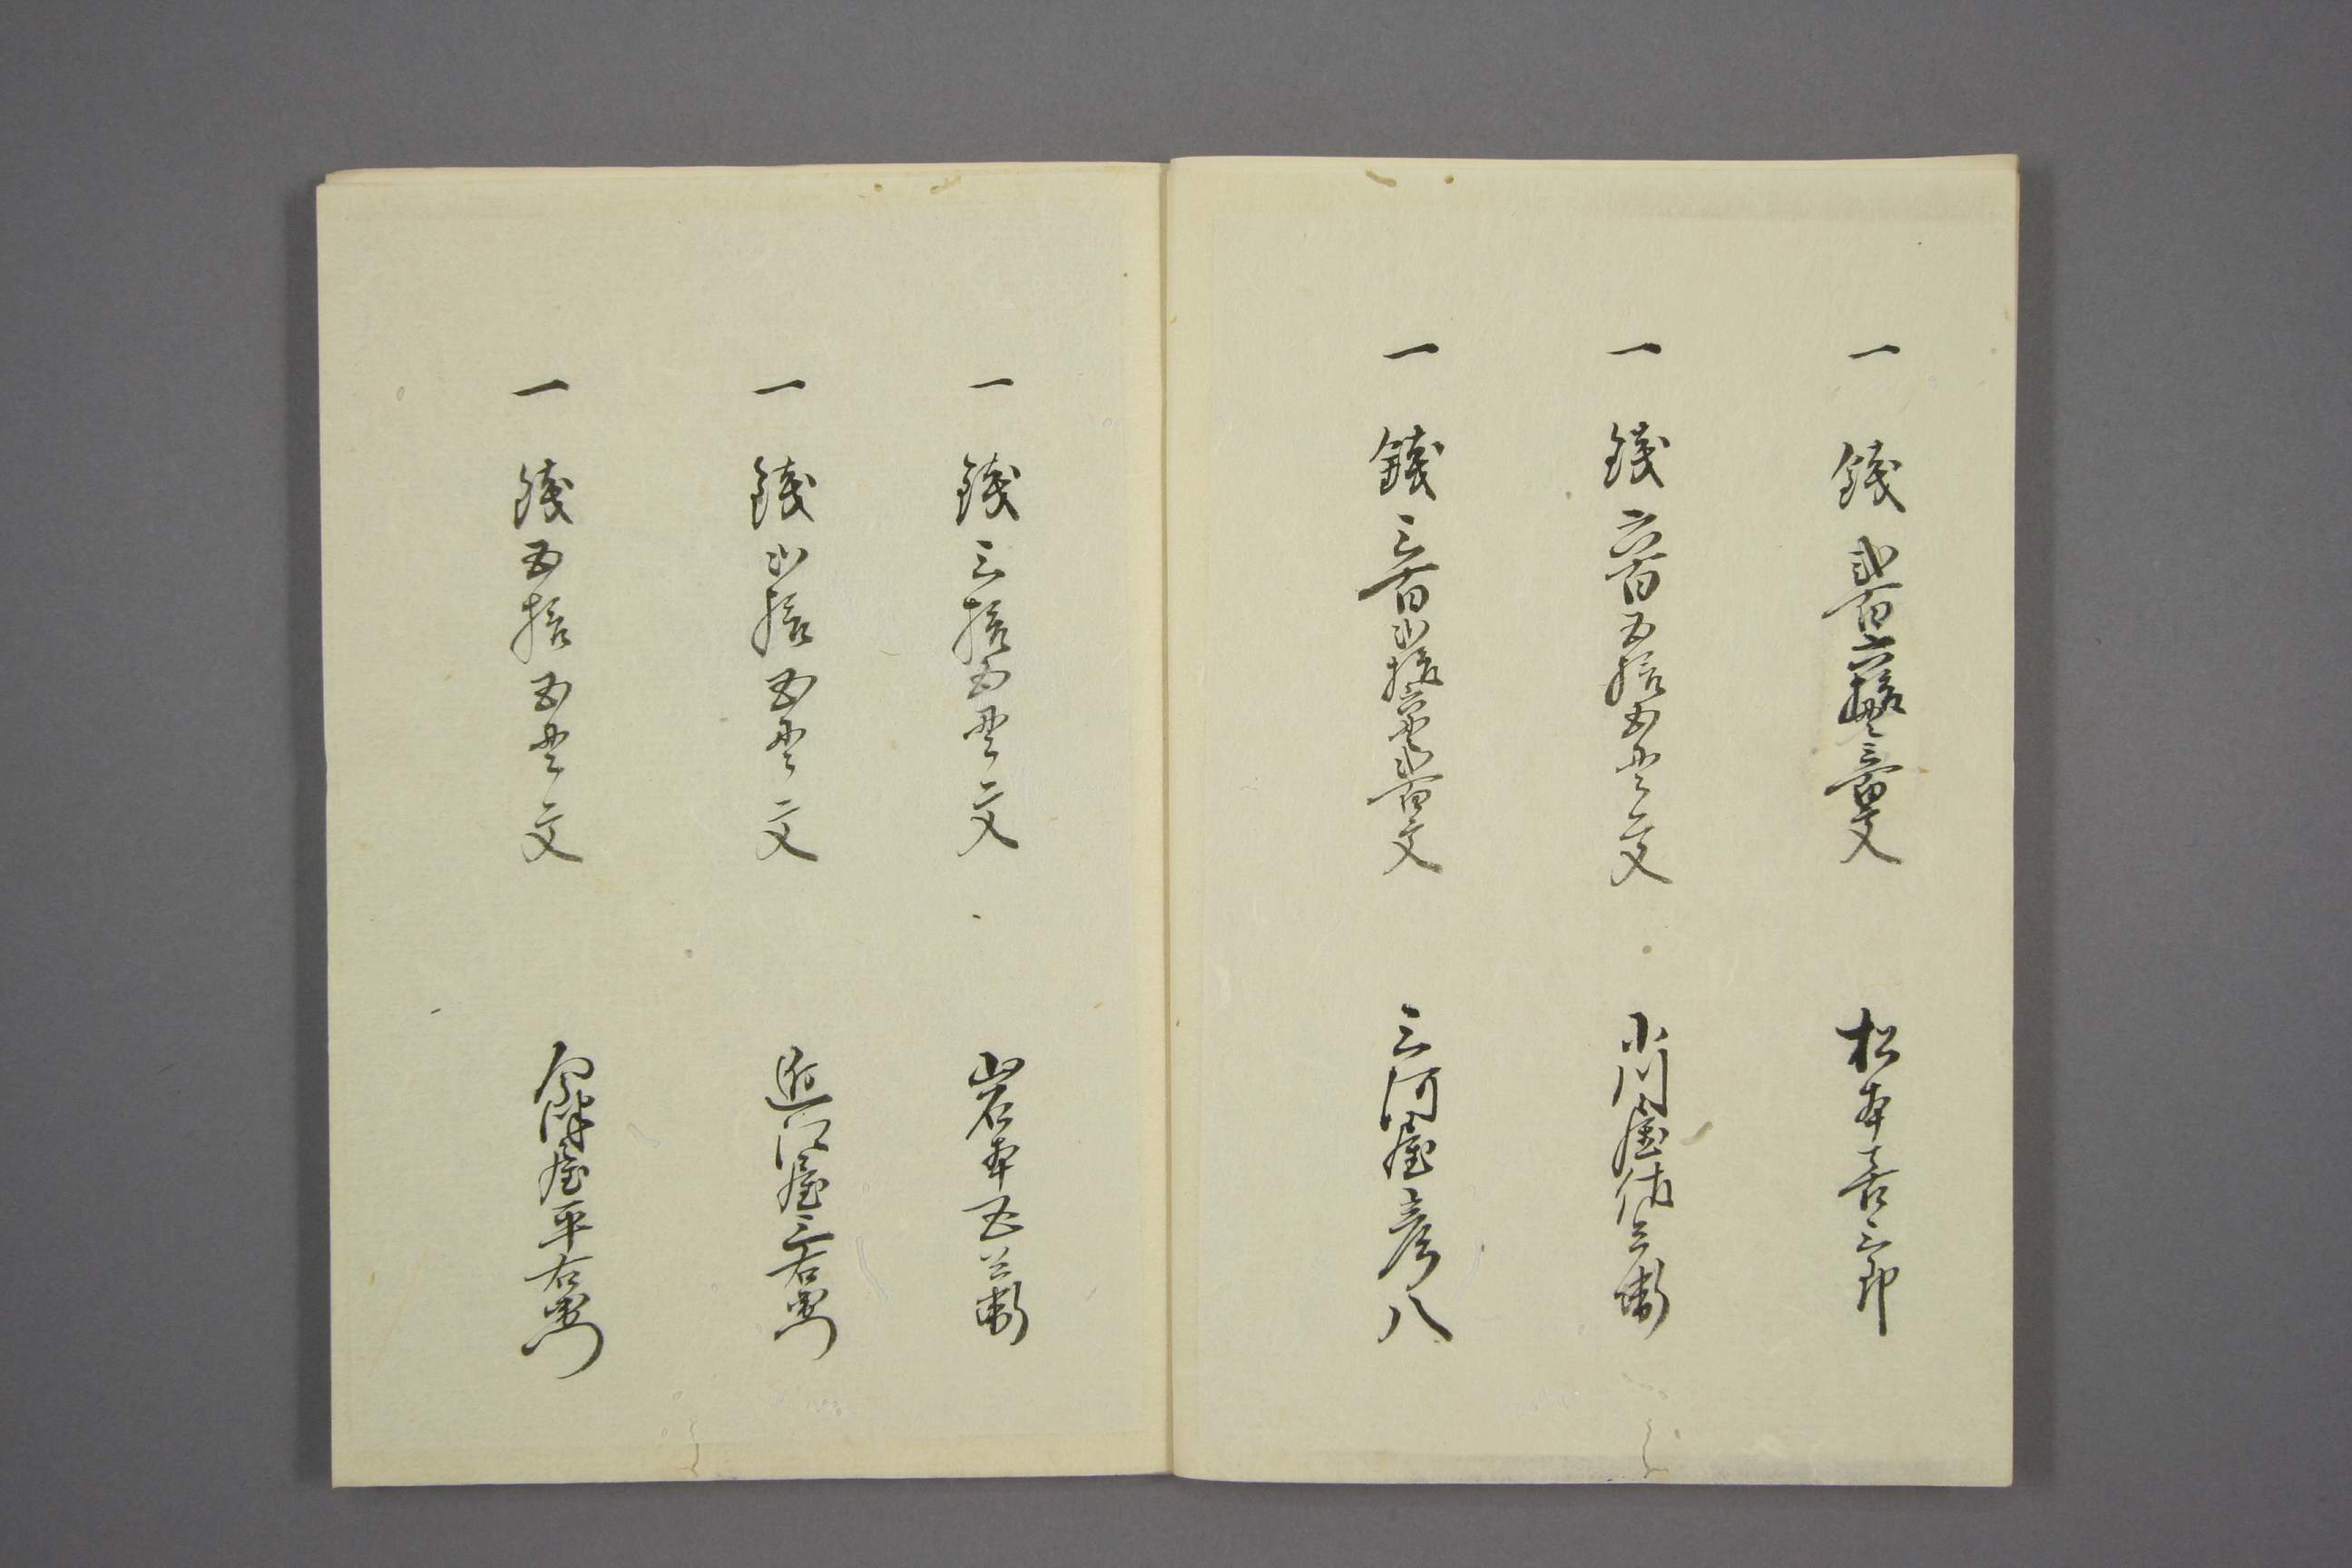 一 銭 弐百六拾貫三百文 松本喜三郎
一 銭 六百五拾五貫文 小川屋佐兵衛
一 銭 三百弐拾六貫弐百文 三河屋彦八
一 銭 三拾五貫文 岩本五兵衛
一 銭 弐拾五貫文 近江屋三右衛門
一 銭 五拾五貫文 屋平右衛門